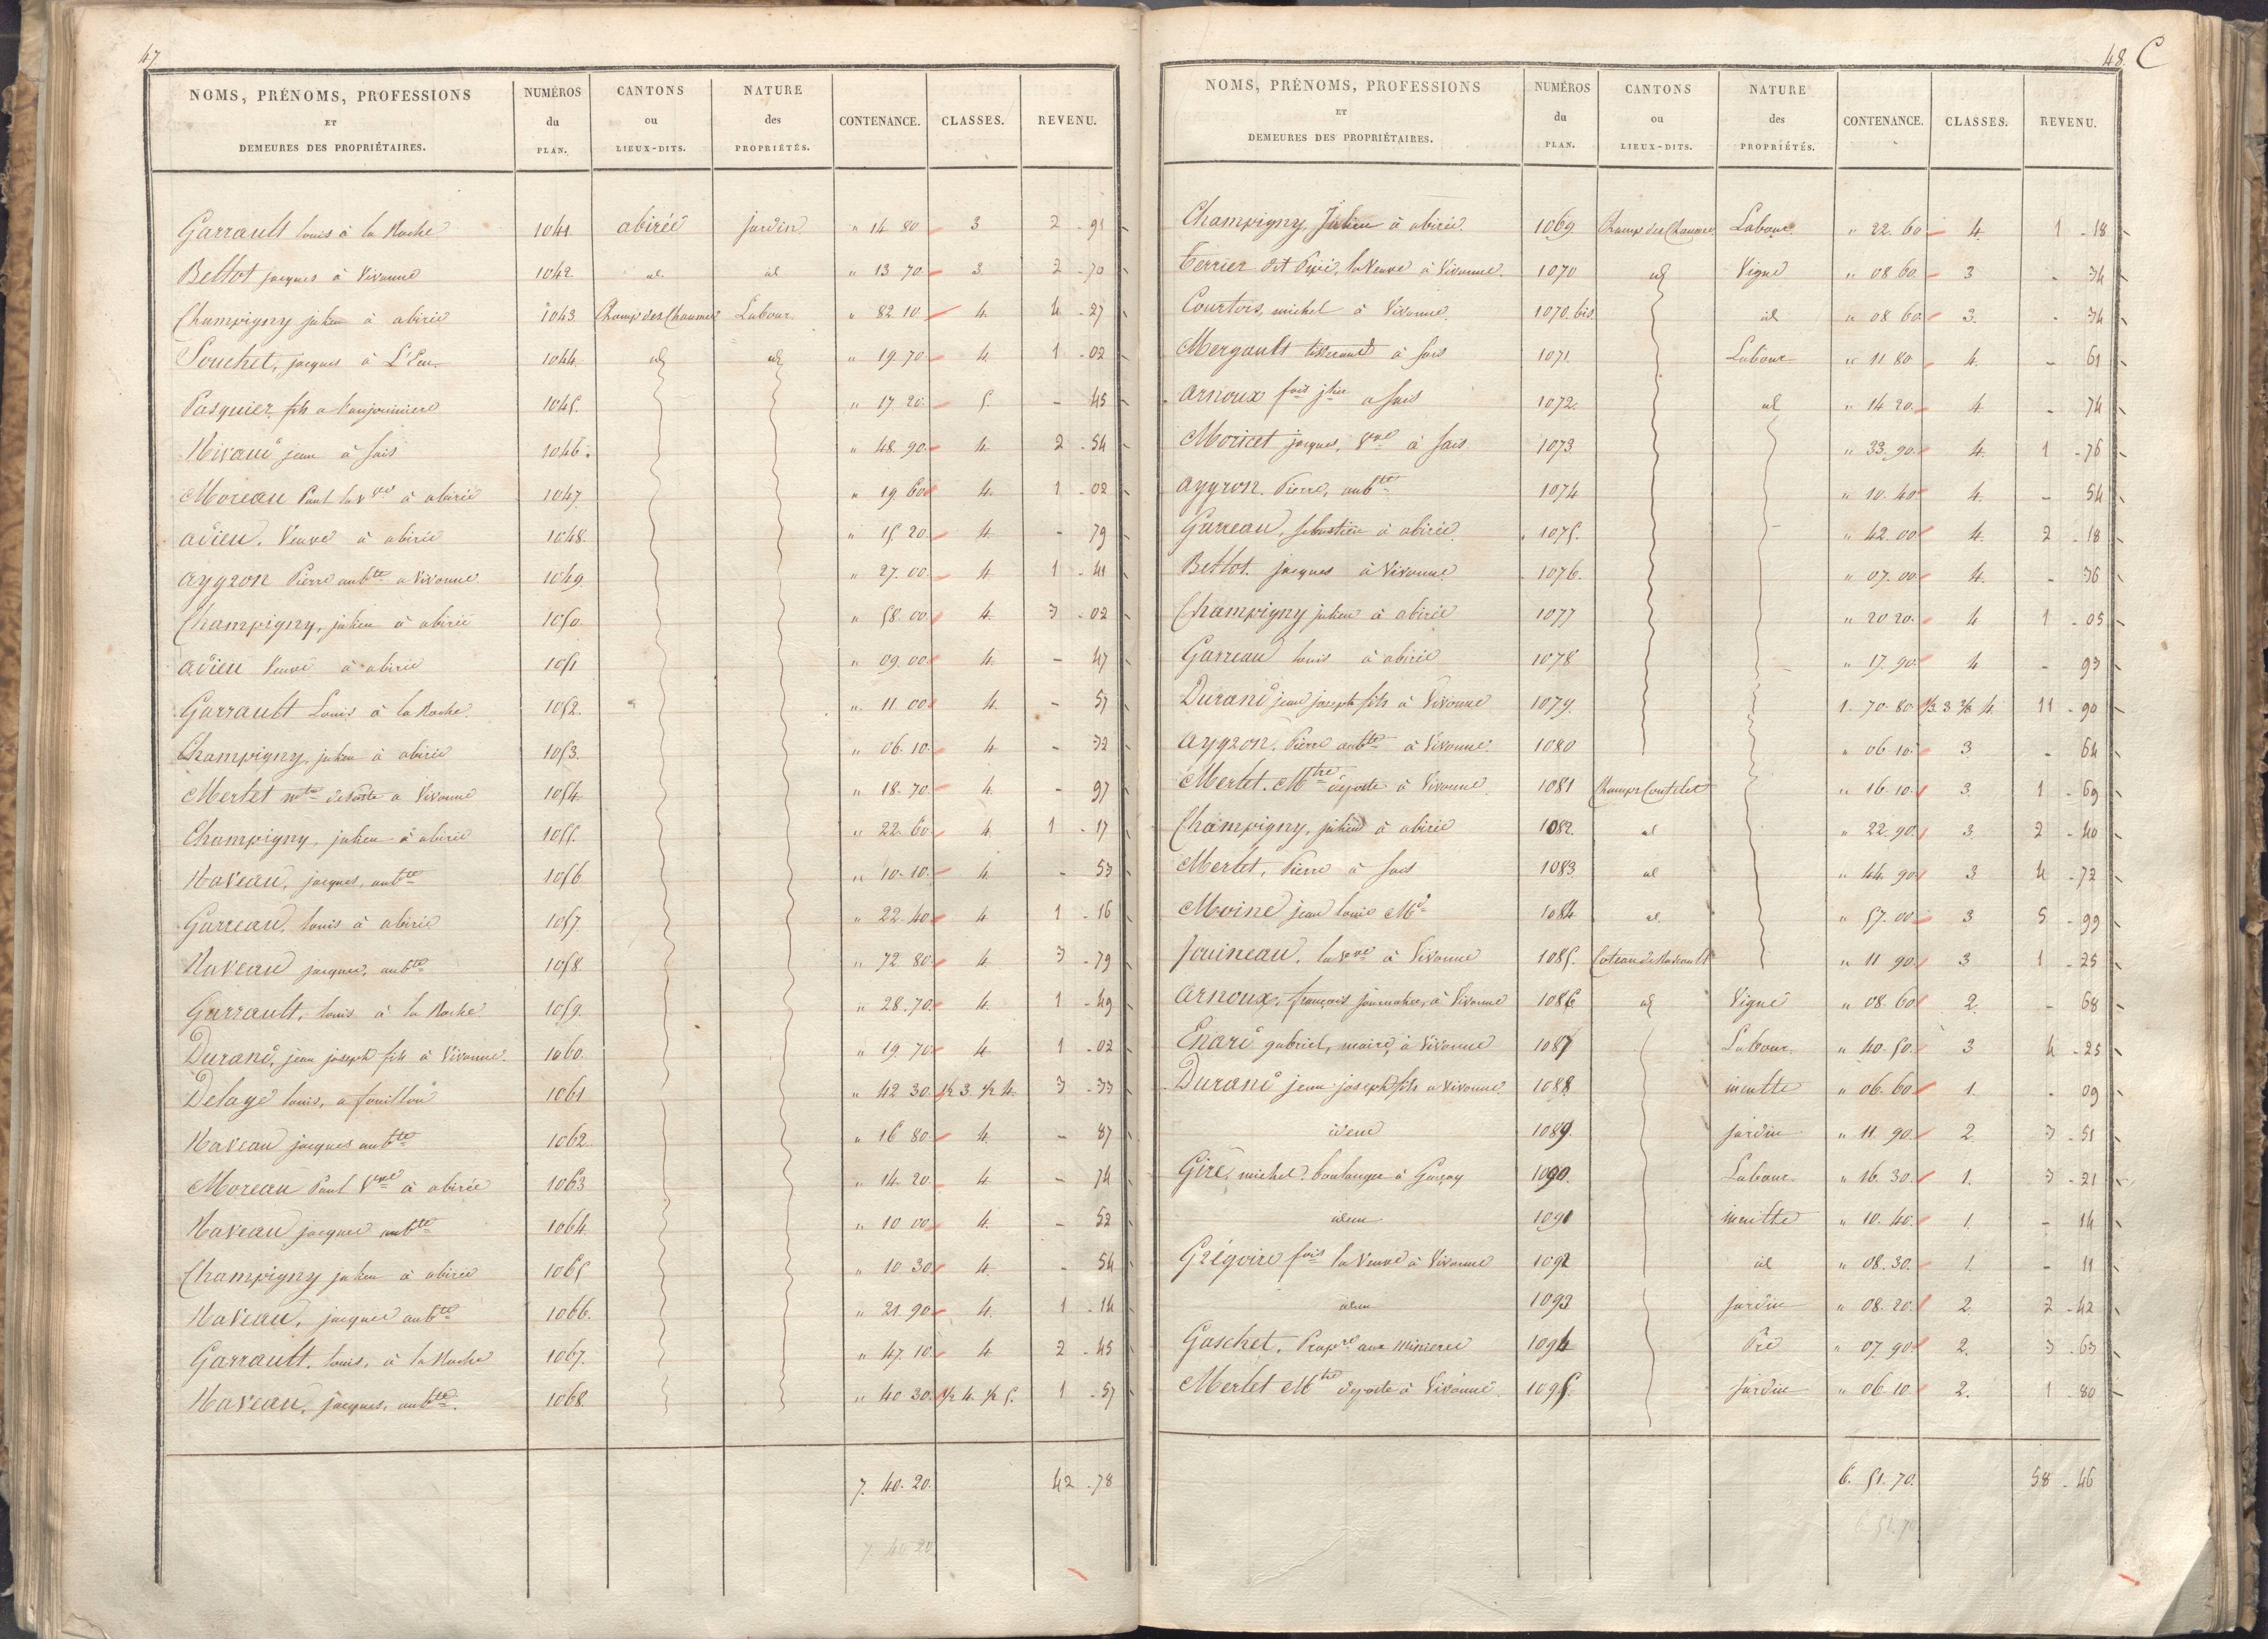 47
NOMS, PRÉNOMS, PROFESSIONS ET DEMEURES DES PROPRIÉTAIRES. NUMÉROS du PLAN. CANTONS ou LIEUX-DITS. NATURE des PROPRIÉTÉS. CONTENANCE. CLASSES. REVENU.
Garrault louis à la Roche 1041 abirée jardin " 14 80 3 2 - 91
Bettot jacques à Vivonne 1042 id. id " 13 70 3. 2 - 70
Champigny julien à abirée 1043. Champ des Chaumes Labour. " 82 10. 4. 4 - 27
Souchet, jacques à 1044. id id " 19 70 4. 1 - 02
Pasquier fils a 1045. " 17 20 5. - 45
jean à Sais 1046. " 48. 90. 4. 2 - 54
Moreau Paul la Vve à abirée 1047. " 19 60 4. 1 - 02
adieu. Veuve à abirée 1048. " 15 20. 4. - 79
aygron Pierre aubte a Vivonne 1049. " 27. 00. 4 1 - 41
Champigny, julien à abirée 1050. " 58. 00. 4. 3 - 02
adieu Veuve à abirée 1051 " 09. 00. 4. - 47
Garrault Louis à la Roche. 1052. " 11. 00 4. - 57
Champigny, julien à abirée 1053. " 06. 10. 4 - 32
Merlet mtre de Poste a Vivonne 1054. " 18. 70. 4. - 97
Champigny, julien à abirée 1055. " 22. 60. 4. 1 - 17
Naveau, jacques, aubte 1056 " 10. 10. 4. - 53
Garreau, louis à abirée 1057. " 22. 40. 4. 1 - 16
Naveau jacques, aubte 1058. " 72. 80. 4. 3 - 79
Garrault, louis à la Roche 1059. " 28. 70. 4. 1 - 49
Durand, jean joseph fils à Vivonne. 1060. " 19. 70 4 1 - 02
Delage louis, a 1061 " 42 30. 1/2 3. 1/2 4. 3 - 33
Naveau jacques aubte 1062. " 16 80. 4. - 87
Moreau Paul Vve à abirée 1063 " 14. 20. 4. - 74
Naveau jacques aubte 1064. " 10 00 4. - 52
Champigny julien à abirée 1065 " 10 30. 4. - 54
Naveau, jacques aubte 1066. " 21. 90. 4. 1 - 14
Garrault, louis, à la Roche 1067. " 47. 10. 4 2 - 45
Naveau, jacques, aubte. 1068. " 40 30. 1/2 4. 1/2 5. 1 - 57
7. 40. 20. 42 - 78
7. 40 20
48. C
NOMS, PRÉNOMS, PROFESSIONS ET DEMEURES DES PROPRIÉTAIRES. NUMÉROS du PLAN. CANTONS ou LIEUX-DITS. NATURE des PROPRIÉTÉS. CONTENANCE. CLASSES. REVENU.
Champigny, Julien à abirée. 1069 Champ des Chaumes Labour. " 22. 60 4. 1 - 18
Terrier dit la Veuve à Vivonne. 1070 id Vigne " 08 60. 3 - 34
Courtois, michel à Vivonne. 1070. bis id " 08 60. 3. - 34
Mergault à Sais 1071. Labour " 11 80 4. - 61
arnoux fois a Sais 1072. id " 14 20. 4 - 74
Moricet jacques, Vve à Sais 1073 " 33. 90. 4. 1 - 76
aygron. Pierre, aubte 1074 " 10. 40 4. - 54
Garreau, sebastien à abirée 1075. " 42. 00 4. 2 - 18
Bettot. jacques à Vivonne 1076. " 07. 00 4. - 36
Champigny julien à abirée 1077 " 20 20. 4 1 - 05
Garreau louis à abirée 1078 " 17. 90. 4 - 93
Durand jean joseph fils à Vivonne 1079. 1. 70. 80 1/3 3 2/3 4. 11 - 90
aygron. Pierre aubte à Vivonne. 1080 " 06 10. 3 - 64
Merlet. Mtre de poste à Vivonne. 1081 " 16. 10. 3. 1 - 69
Champigny, julien à abirée 1082. id " 22. 90. 3. 2 - 40
Merlet, Pierre à Sais 1083 id " 44. 90. 3 4 - 72
Moine jean louis Md 1084 id " 57. 00 3 5 - 99
Jouineau, la Vve à Vivonne 1085. " 11 90. 3 1 - 25
arnoux, françois journalier, à Vivonne 1086 id Vigne " 08. 60 2. - 68
Enard gabriel, maire, à Vivonne 1087 Labour. " 40. 50. 3 4 - 25
Durand jean joseph fils a Vivonne. 1088 inculte " 06. 60 1. - 09
idem 1089. jardin " 11 90. 2. 3 - 51
Giré, michel, boulanger à 1090. Labour. " 16. 30. 1. 3 - 21
idem 1091 inculte " 10. 40. 1. - 14
Grégoire fois la Veuve à Vivonne 1092 id " 08. 30. 1. - 11
idem 1093 jardin " 08. 20. 2. 2 - 42
Gaschet, Propre aux minieres 1094 Pré " 07. 90 2. 3 - 63
Merlet Mtre de poste à Vivonne. 1095. jardin " 06 10. 2. 1 - 80
6. 51. 70. 58 - 46
6. 51. 70